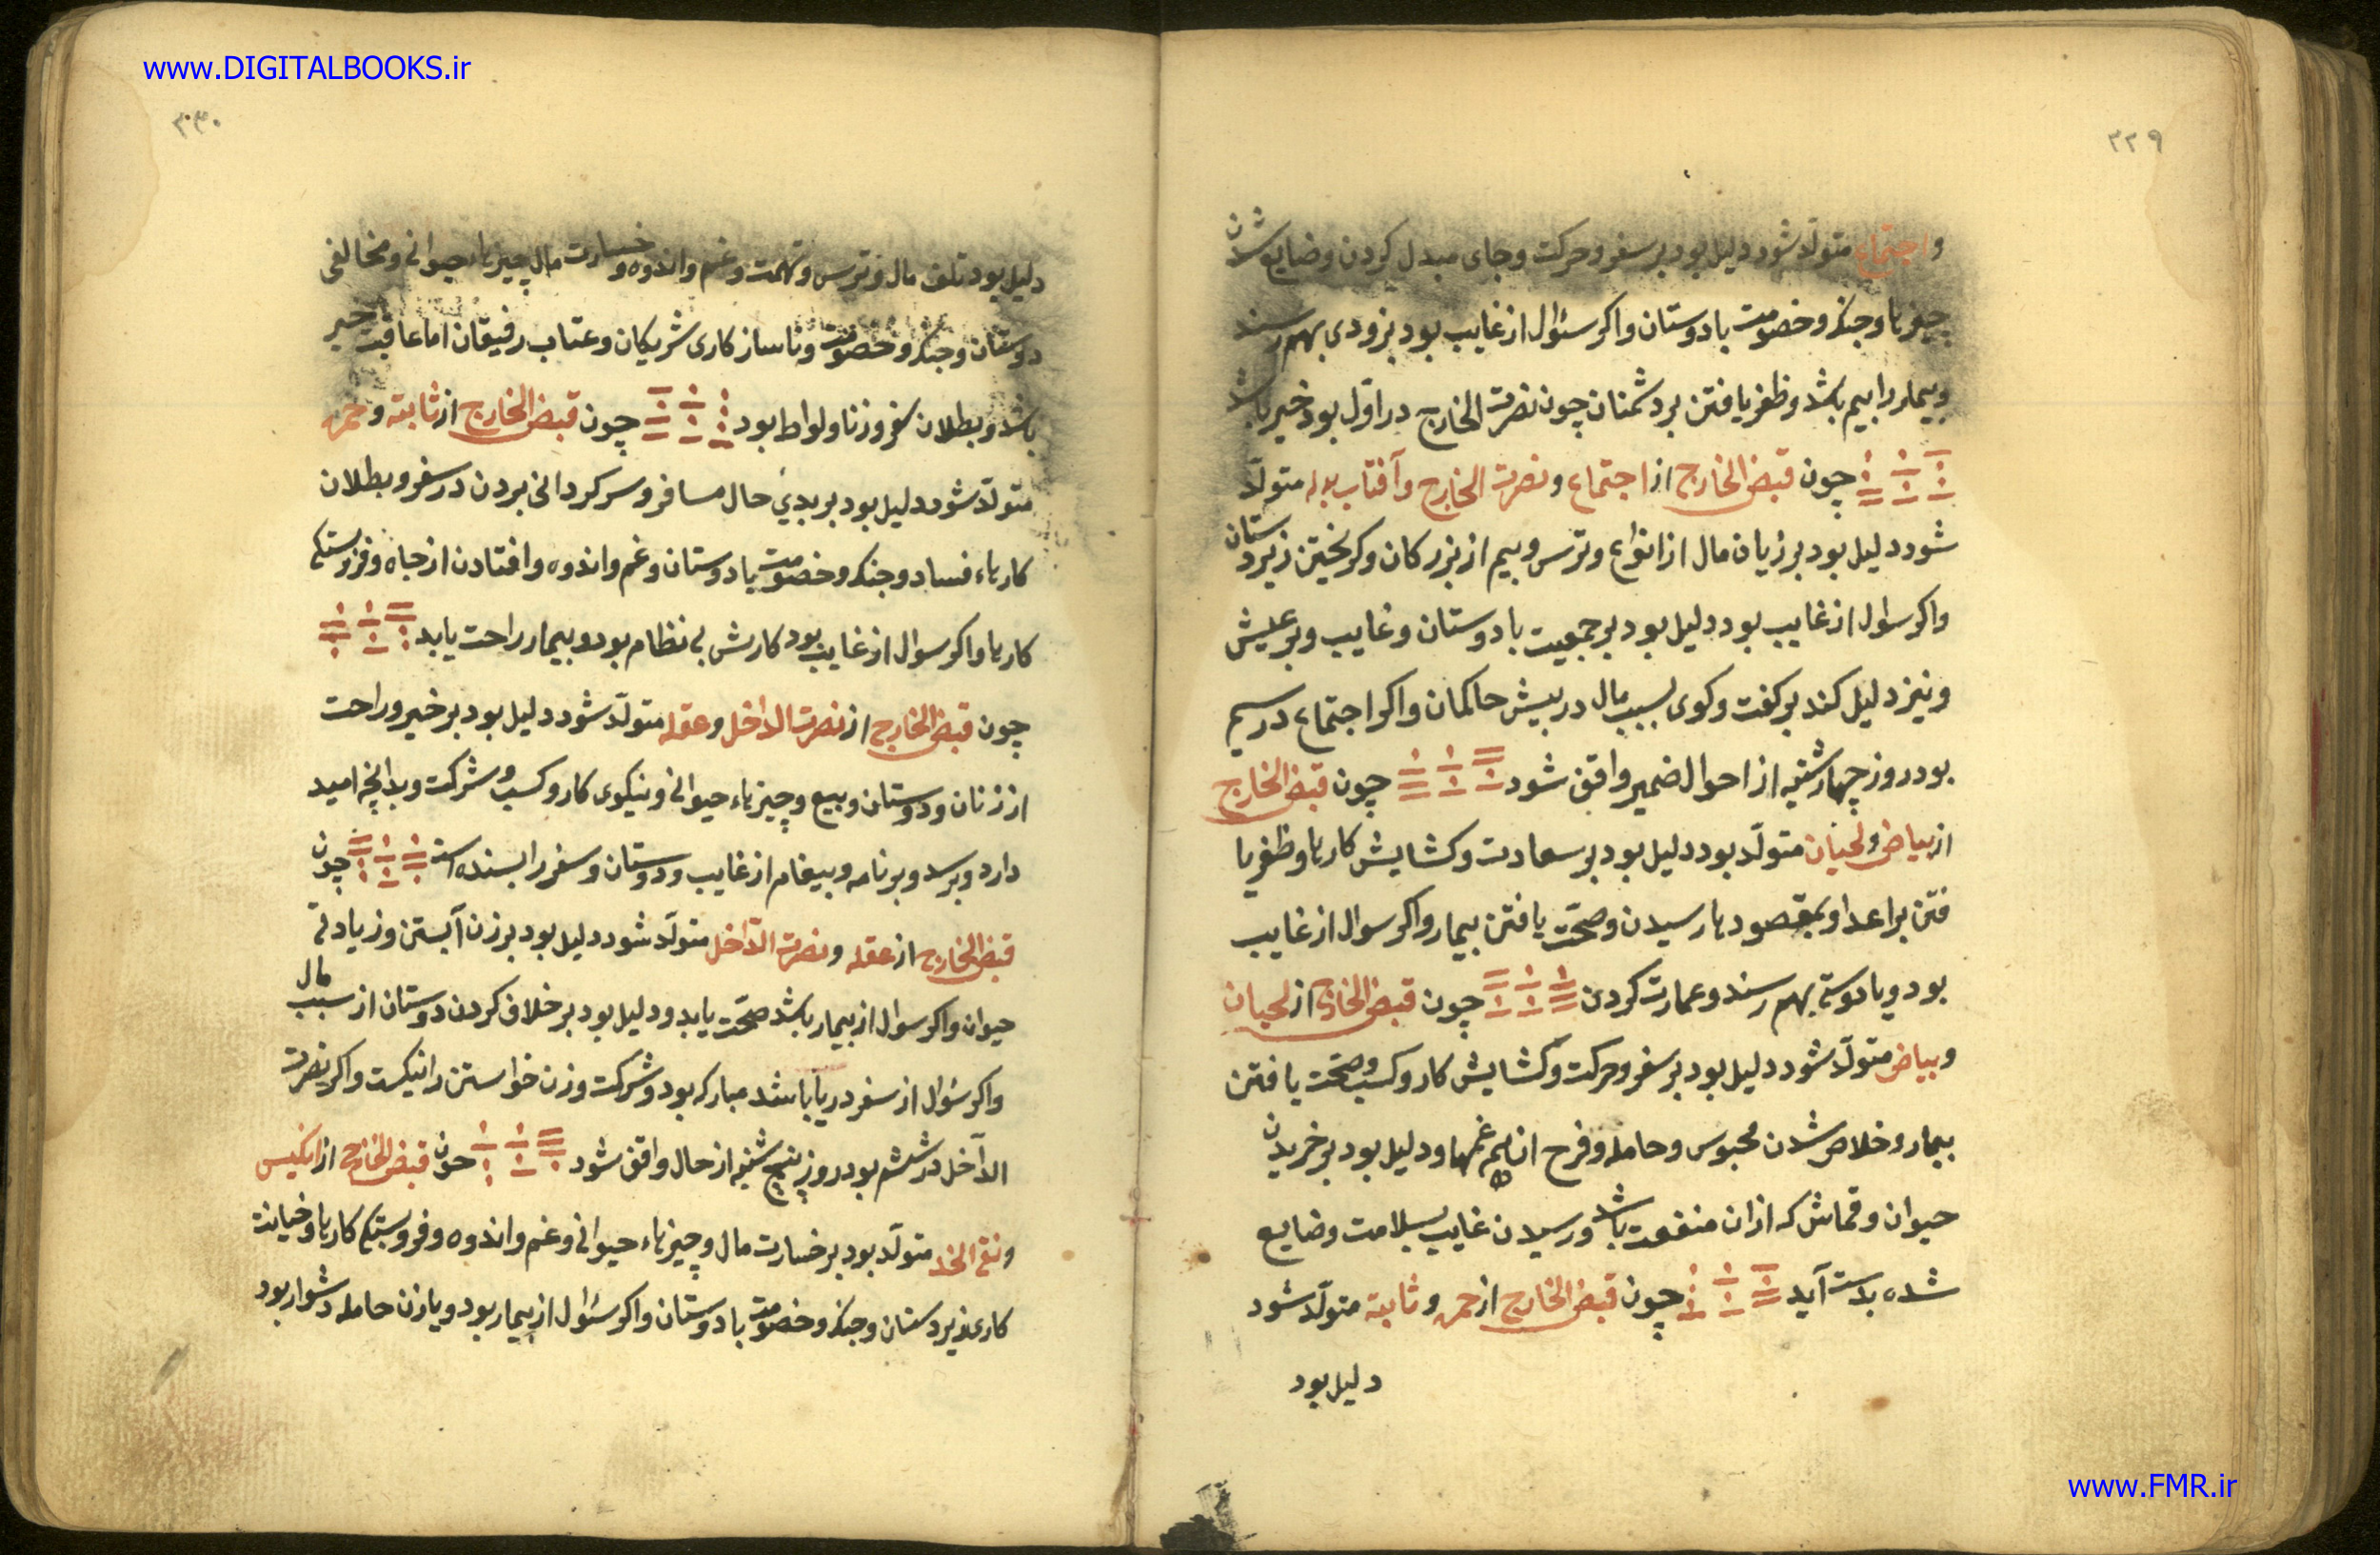 www.DIGITALBOOKS.ir
۳۲۹
و اجتماع متولّد شود دلیل بود بر سفر و حرکت و جای مبدل کردن و ضایع شدن
چیزها و جنک و خصومت با دوستان و اکر سئوال از غایب بود بزودی بهم رسند
و بیمار را بیم باشد و ظفر یافتن بر دشمنان چون نصرت الخارج در اوّل بود خیر باشد
چون قبض الخارج از اجتماع و نصرت الخارج و آفتاب متولّد
شود دلیل بود بر زیان مال از انواع و ترس و بیم از بزرکان و کریختن زیردستان
و اکر سوال از غایب بود دلیل بود بر جمعیت با دوستان و غایب و بر عیش
و نیز دلیل کند بر کفت و کوی بسبب مال در پیش حاکمان و اکر اجتماع در سیم
بود روز چهارشنبه از احوال ضمیر واقف شود چون قبض الخارج
از بیاض و لحیان متولّد بود دلیل بود بر سعادت و کشایش کارها و ظفر یا
فتن بر اعدا و بمقصودها رسیدن و صحّت یافتن بیمار و اکر سوال از غایب
بود و یا دوستی بهم رسند و عمارت کردن چون قبض الخارج از لحیان
و بیاض متولّد شود دلیل بود بر سفر و حرکت و کشایش کار و کسب و صحّت یافتن
بیمار و خلاص شدن محبوس و حامله و فرح از هم غمها و دلیل بود بر خریدن
حیوان و قماش که ازان منفعت باشد و رسیدن غایب بسلامت و ضایع
شده بدست آید چون قبض الخارج از حمره و ثابته متولّد شود
دلیل بود
۳۳۰
دلیل بود تلف مال و ترس و تهمت و غم و اندوه و خسارت مال چیزهاء حیوانی و مخالفی
دوستان و جنک و خصومت و ناسازکاری شریکان و عتاب رفیقان اما عاقبت خیر
باشد و بطلان سفر و زنا و لواط بود چون قبض الخارج از ثابته و حمره
متولّد شود دلیل بود بر بدی حال مسافر و سرکردانی بردن در سفر و بطلان
کارهاء فساد و جنک و خصومت با دوستان و غم و اندوه و افتادن از جاه و فروبستکی
کارها و اکر سوال از غایب بود کارش بی نظام بود و بیمار راحت یابد
چون قبض الخارج از نصرت الداخل و عقله متولّد شود دلیل بود بر خیر و راحت
از زنان و دوستان و بیع و چیزهاء حیوانی و نیکوی کار و کسب و شرکت و بدانچه امید
دارد و برسد و بر نامه و پیغام از غایب و دوستان و سفر را بسنده است چون
قبض الخارج از عقله و نصرت الدّاخل متولّد شود دلیل بود بر زن آبستن و زیادتی
حیوان و اکر سوال از بیمار باشد صحّت یابد و دلیل بود بر خلاف کردن دوستان از سبب مال
و اکر سئوال از سفر دریا باشد مبارکه بود و شرکت و زن خواستن را نیکست و اکر نصرت
الدّاخل در ششم بود روز پنج شنبه از حال واقف شود چون قبض الخارج از انکیس
و نقی الخد متولّد بود بر خسارت مال و چیزهاء حیوانی و غم و اندوه و فروبستکی کارها و خیانت
کاری زیردستان و جنک و خصومت با دوستان و اکر سئوال از بیمار بود و یا زن حامله دشوار بود
www.FMR.ir